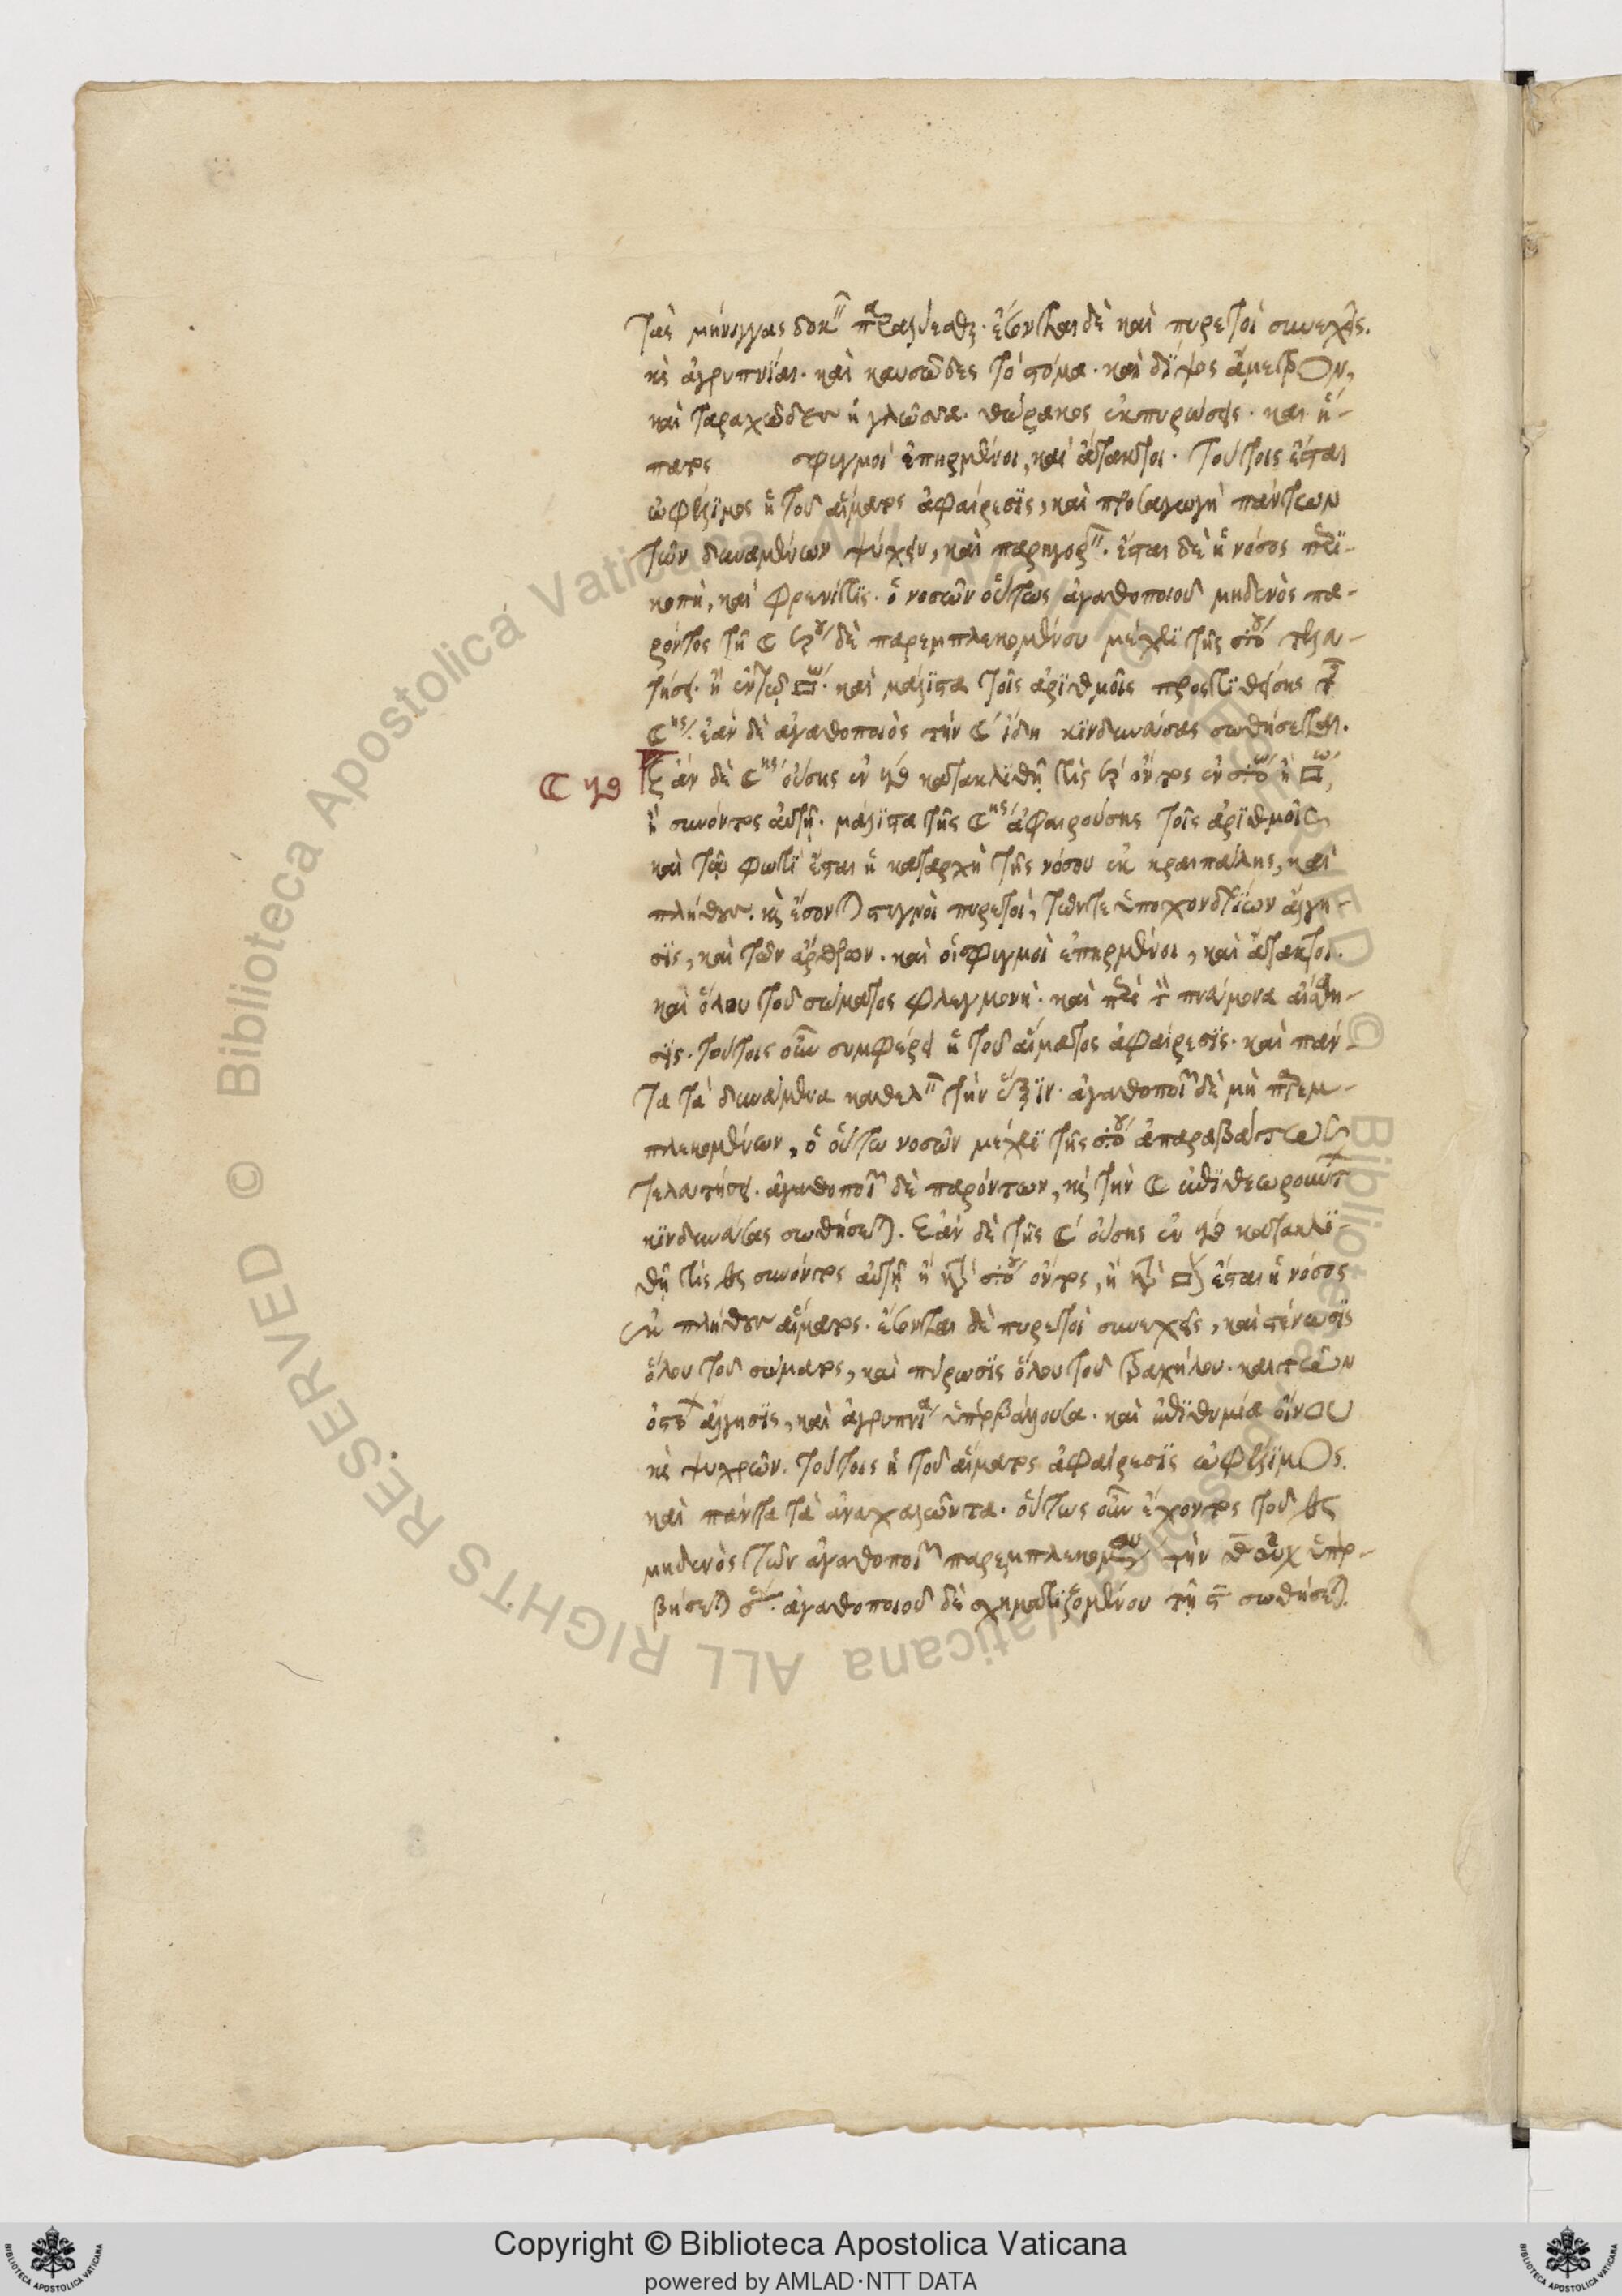 τὰς μήνιγγας δοκ παραλύεσθαι. ἔσονται δὲ καὶ πυρετοὶ συνεχεῖς.
καὶ ἀγρυπνίαι. καὶ καυσῶδες τὸ στόμα. καὶ δίψος ἄμετρον,
καὶ ταραχώδης ἡ γλῶσσα. θώρακος ἐκπυρώσεις. καὶ ἥ-
πατος σφυγμοὶ ἐπηρμένοι, καὶ ἄτακτοι. τούτοις ἔσται
ὠφέλιμος ἡ τοῦ αἵματος ἀφαίρεσις, καὶ προσαγωγὴ πάντων
τῶν δυναμένων ψύχειν, καὶ παρηγορ. ἔσται δὲ ἡ νόσος περι-
κοπὴ, καὶ φρενίτις. ὁ νοσῶν οὕτως ἀγαθοποιοῦ μηδενὸς πα-
ρόντος τῇ ☾ δὲ παρεμπλεκομένου μέχρι τῆς τελευ-
τήσει. ἢ ἐν τῷ □. καὶ μάλιστα τοῖς ἀριθμοῖς προστιθείσης τ
☾ης. ἐὰν δὲ ἀγαθοποιὸς τὴν ☾ ἴδῃ κινδυνεύσας σωθήσεται.
☾ ♍
Ἐὰν δὲ ☾ης οὔσης ἐν ♍ κατακλιθῇ τις ὄντος ἐν ἢ □,
ἢ συνόντος αὐτῇ. μάλιστα τῆς ☾ης ἀφαιρούσης τοῖς ἀριθμοῖς
καὶ τῷ φωτὶ ἔσται ἡ καταρχὴ τῆς νόσου ἐκ κραιπάλης, καὶ
πλήθους. καὶ ἔσονται πυρετοὶ, τῶν τε ὑποχονδρίων ἄλγη-
σις, καὶ τῶν ἄρθρων. καὶ οἱ σφυγμοὶ ἐπηρμένοι, καὶ ἄτακτοι.
καὶ ὅλου τοῦ σώματος φλεγμονὴ. καὶ περὶ τὸν πνεύμονα αἰσθη-
σις. τούτοις οὖν συμφέρει ἡ τοῦ αἵματος ἀφαίρεσις. καὶ πάν
τα τὰ δυνάμενα καθελ τὴν ἕξιν. ἀγαθοποι δὲ μὴ παρεμ-
πλεκομένων, ὁ οὕτω νοσῶν μέχρι τῆς ἀπαραβάτως
τελευτήσει. ἀγαθοποι δὲ παρόντων, καὶ τὴν ☾ ἐπιθεωρούντ
κινδυνεύσας σωθήσεται. Ἐὰν δὲ τῆς ☾ οὔσης ἐν ♍ κατακλι-
θῇ τις συνόντος αὐτῇ ἢ κατὰ ὄντος, ἢ κατὰ □ ἔσται ἡ νόσος
ἐκ πλήθους αἵματος. ἔσονται δὲ πυρετοὶ συνεχεῖς, καὶ στένωσις
ὅλου τοῦ σώματος, καὶ πύρωσις ὅλου τοῦ τραχήλου. καὶ τῶν
ὀστ ἄλγησις, καὶ ἀγρυπνία ὑπερβάλλουσα. καὶ ἐπιθυμία οἴνου
καὶ ψυχρῶν. τούτοις ἡ τοῦ αἵματος ἀφαίρεσις ὠφέλιμος.
καὶ πάντα τὰ ἀναχαλῶντα. οὕτως οὖν ἔχοντος τοῦ
μηδενὸς τῶν ἀγαθοποι παρεμπλεκομένου τὴν οὐχ ὑπερ-
βήσεται. ἀγαθοποιοῦ δὲ σχηματιζομένου τῇ σωθήσεται.
Copyright © Biblioteca Apostolica Vaticana
powered by AMLAD·NTT DATA